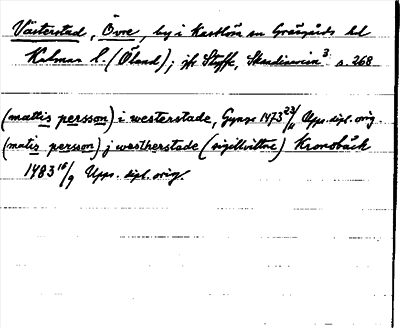 Västerstad, Övre, by i Kastlösa sn Gräsgårds hd
Kalmar l. (Öland); jfr Styffe, Skandinavien³ s. 268
(mattis persson) i westerstade, Gynge 1473 23/11 Upps. dipl. orig.
(matis persson) j westherstade (sigillvittne) Kronobäck
1483 15/9 Upps. dipl. orig.